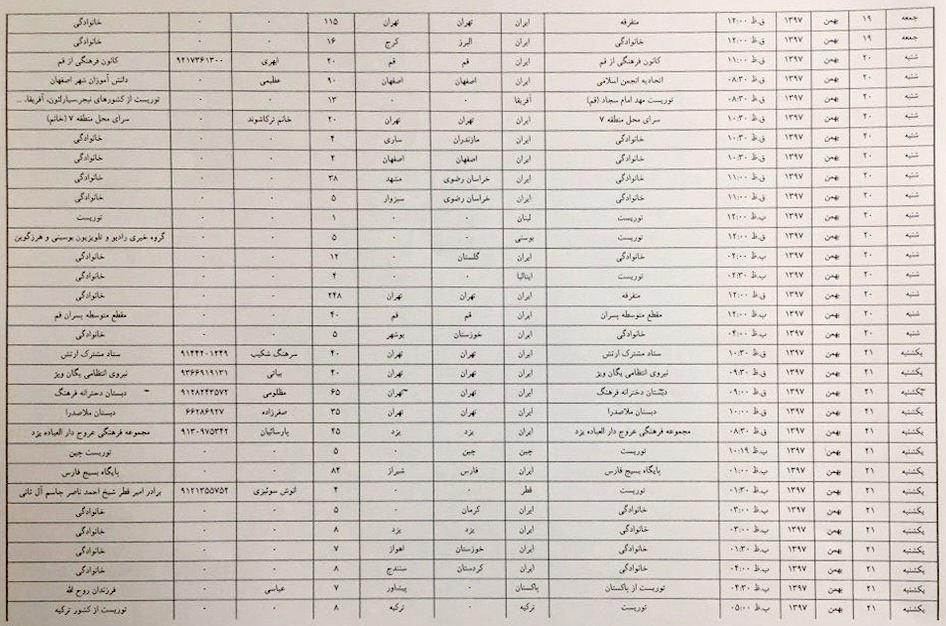 جمعه ۱۹ بهمن ۱۳۹۷ ق.ظ ۱۲:۰۰ متفرقه ایران تهران تهران ۱۱۵ ۰ ۰ خانوادگی
جمعه ۱۹ بهمن ۱۳۹۷ ق.ظ ۱۲:۰۰ خانوادگی ایران البرز کرج ۱۶ ۰ ۰ خانوادگی
شنبه ۲۰ بهمن ۱۳۹۷ ق.ظ ۱۱:۰۰ کانون فرهنگی از قم ایران قم قم ۲۰ ابهری ۹۲۱۷۳۶۱۳۰۰ کانون فرهنگی از قم
شنبه ۲۰ بهمن ۱۳۹۷ ق.ظ ۰۸:۳۰ اتحادیه انجمن اسلامی ایران اصفهان اصفهان ۹۰ عظیمی ۰ دانش آموزان شهر اصفهان
شنبه ۲۰ بهمن ۱۳۹۷ ق.ظ ۰۸:۳۰ توریست مهد امام سجاد (قم) آفریقا ۰ ۰ ۱۳ ۰ ۰ توریست از کشورهای نیجر،سیارالئون، آفریقا، ...
شنبه ۲۰ بهمن ۱۳۹۷ ق.ظ ۱۰:۳۰ سرای محل منطقه ۷ ایران تهران تهران ۲۰ خانم ترکاشوند ۰ سرای محل منطقه ۷ (خانم)
شنبه ۲۰ بهمن ۱۳۹۷ ق.ظ ۱۰:۳۰ خانوادگی ایران مازندران ساری ۴ ۰ ۰ خانوادگی
شنبه ۲۰ بهمن ۱۳۹۷ ق.ظ ۱۰:۳۰ خانوادگی ایران اصفهان اصفهان ۲ ۰ ۰ خانوادگی
شنبه ۲۰ بهمن ۱۳۹۷ ق.ظ ۱۱:۰۰ خانوادگی ایران خراسان رضوی مشهد ۳۸ ۰ ۰ خانوادگی
شنبه ۲۰ بهمن ۱۳۹۷ ق.ظ ۱۱:۰۰ خانوادگی ایران خراسان رضوی سبزوار ۵ ۰ ۰ خانوادگی
شنبه ۲۰ بهمن ۱۳۹۷ ب.ظ ۱۲:۰۰ توریست لبنان ۰ ۰ ۱ ۰ ۰ توریست
شنبه ۲۰ بهمن ۱۳۹۷ ق.ظ ۱۲:۰۰ توریست بوسنی ۰ ۰ ۵ ۰ ۰ گروه خبری رادیو و تلویزیون بوسنی و هرزگوین
شنبه ۲۰ بهمن ۱۳۹۷ ب.ظ ۰۲:۰۰ خانوادگی ایران گلستان ۰ ۱۲ ۰ ۰ خانوادگی
شنبه ۲۰ بهمن ۱۳۹۷ ب.ظ ۰۲:۳۰ توریست ایتالیا ۰ ۰ ۴ ۰ ۰ توریست
شنبه ۲۰ بهمن ۱۳۹۷ ق.ظ ۱۲:۰۰ متفرقه ایران تهران تهران ۲۴۸ ۰ ۰ خانوادگی
شنبه ۲۰ بهمن ۱۳۹۷ ب.ظ ۱۲:۰۰ مقطع متوسطه پسران ایران قم قم ۴۰ ۰ ۰ مقطع متوسطه پسران قم
شنبه ۲۰ بهمن ۱۳۹۷ ب.ظ ۰۴:۰۰ خانوادگی ایران خوزستان بوشهر ۵ ۰ ۰ خانوادگی
یکشنبه ۲۱ بهمن ۱۳۹۷ ق.ظ ۱۰:۳۰ ستاد مشترک ارتش ایران تهران تهران ۴۰ سرهنگ شکیب ۹۱۲۴۲۰۱۲۴۹ ستاد مشترک ارتش
یکشنبه ۲۱ بهمن ۱۳۹۷ ق.ظ ۰۹:۳۰ نیروی انتظامی یگان ویژ ایران تهران تهران ۴۰ بیاتی ۹۳۶۶۹۱۹۱۳۱ نیروی انتظامی یگان ویژ
یکشنبه ۲۱ بهمن ۱۳۹۷ ق.ظ ۰۹:۰۰ دبستان دخترانه فرهنگ ایران تهران تهران ۶۵ مظلومی ۹۱۲۸۲۴۳۵۷۲ دبستان دخترانه فرهنگ
یکشنبه ۲۱ بهمن ۱۳۹۷ ق.ظ ۱۰:۰۰ دبستان ملاصدرا ایران تهران تهران ۳۵ صفرزاده ۶۶۲۸۶۹۲۷ دبستان ملاصدرا
یکشنبه ۲۱ بهمن ۱۳۹۷ ق.ظ ۰۸:۳۰ مجموعه فرهنگی عروج دار العباده یزد ایران یزد یزد ۴۵ پارسائیان ۹۱۳۰۹۷۵۳۴۲ مجموعه فرهنگی عروج دار العباده یزد
یکشنبه ۲۱ بهمن ۱۳۹۷ ب.ظ ۱۰:۱۹ توریست چین چین ۰ ۵ ۰ ۰ توریست چین
یکشنبه ۲۱ بهمن ۱۳۹۷ ب.ظ ۰۱:۰۰ پایگاه بسیج فارس ایران فارس شیراز ۸۴ ۰ ۰ پایگاه بسیج فارس
یکشنبه ۲۱ بهمن ۱۳۹۷ ب.ظ ۰۱:۳۰ توریست قطر ۰ ۰ ۴ انوش سوئیزی ۹۱۲۱۳۵۵۷۵۲ برادر امیر قطر شیخ احمد ناصر جاسم آل ثانی
یکشنبه ۲۱ بهمن ۱۳۹۷ ب.ظ ۰۳:۰۰ خانوادگی ایران کرمان ۰ ۵ ۰ ۰ خانوادگی
یکشنبه ۲۱ بهمن ۱۳۹۷ ب.ظ ۰۳:۰۰ خانوادگی ایران یزد یزد ۸ ۰ ۰ خانوادگی
یکشنبه ۲۱ بهمن ۱۳۹۷ ب.ظ ۰۱:۳۰ خانوادگی ایران خوزستان اهواز ۷ ۰ ۰ خانوادگی
یکشنبه ۲۱ بهمن ۱۳۹۷ ب.ظ ۰۴:۰۰ خانوادگی ایران کردستان سنندج ۸ ۰ ۰ خانوادگی
یکشنبه ۲۱ بهمن ۱۳۹۷ ب.ظ ۰۴:۳۰ توریست از پاکستان پاکستان ۰ پیشاور ۷ عباسی ۰ فرزندان روح الله
یکشنبه ۲۱ بهمن ۱۳۹۷ ب.ظ ۰۵:۰۰ توریست ترکیه ۰ ترکیه ۸ ۰ ۰ توریست از کشور ترکیه